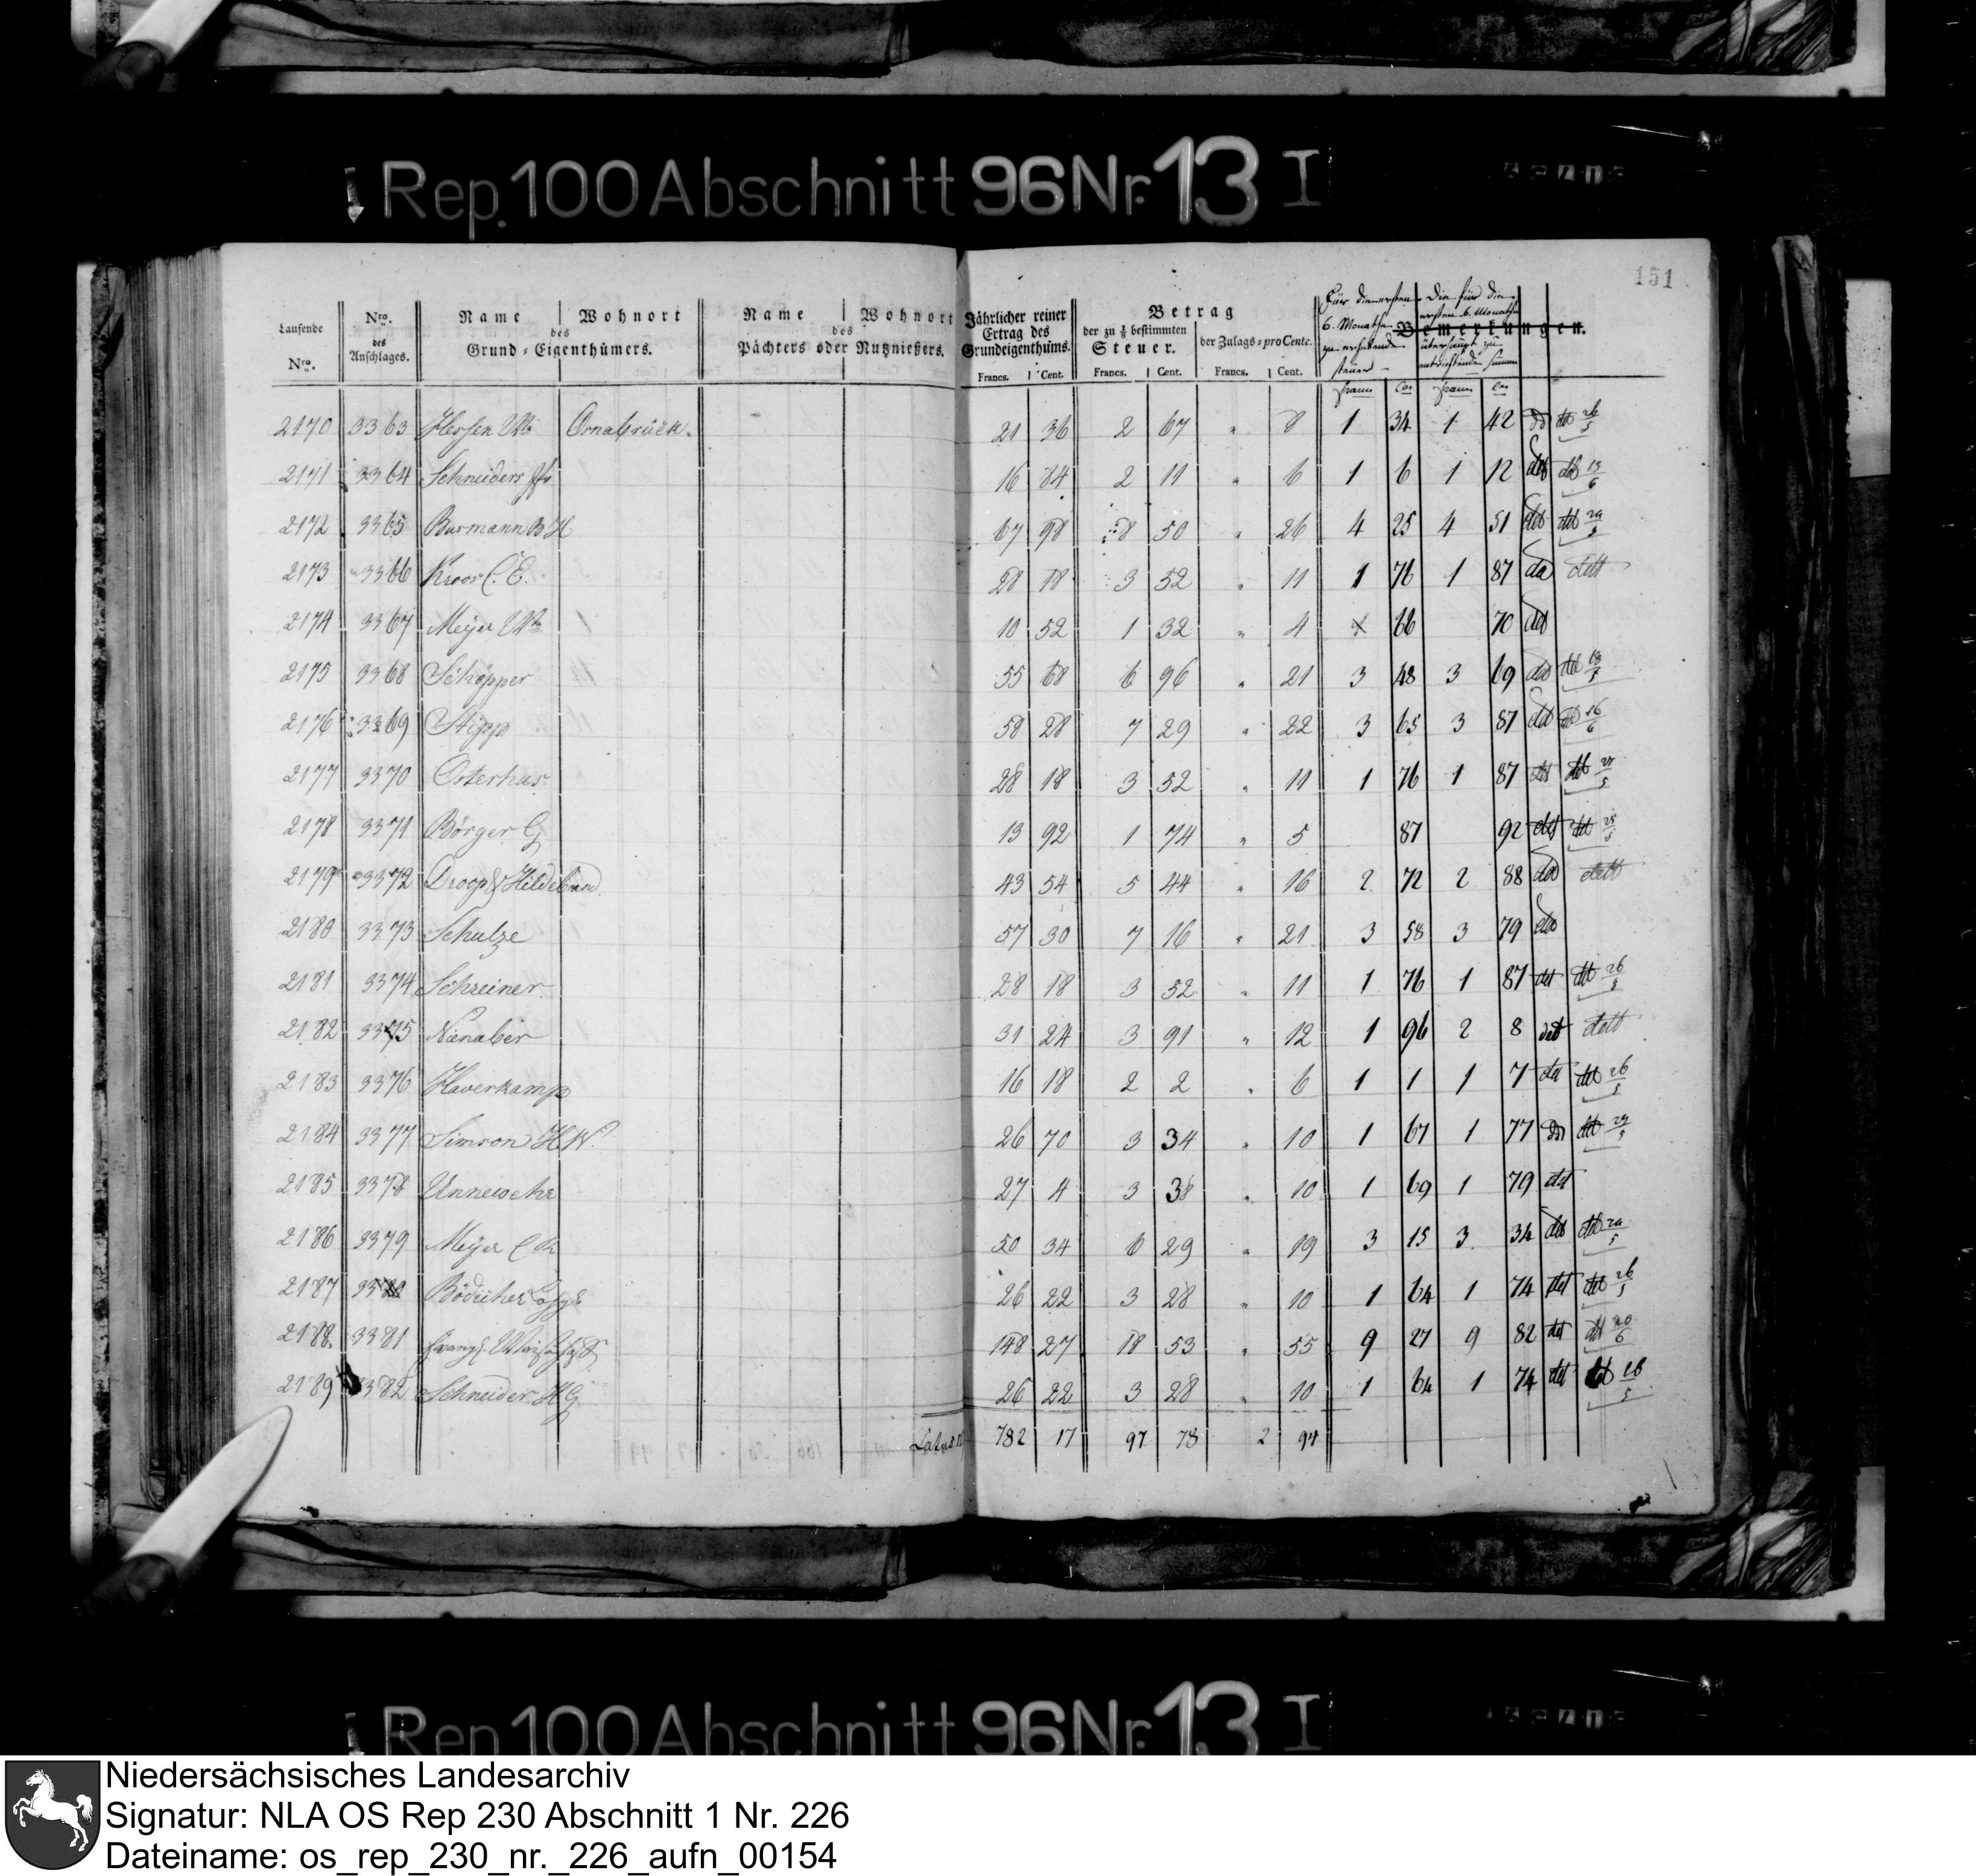 Rep. 100 Abschnitt 96 Nr. 13 I
151
Laufende Nro.
Nro. des Anschlages.
Name Wohnort
des
Grund-Eigenthümers.
Name Wohnort
des
Pächters oder Nutznießers.
Jährlicher reiner Ertrag des Grundeigenthums.
Francs. Cent.
Betrag
der zu ⅛ bestimmten Steuer.
Francs. Cent.
der Zulags-pro Cente.
Francs. Cent.
Für die ersten 6. Monathe zu erhebende Steuer
Die für die ersten 6. Monathe überhaupt zu entrichtende Summe
Bemerkungen.
2170 3363 Osnabrück. 21 36 2 67 " 8 1 34 1 42 26/5
2171 3364 Schneiders 16 84 2 11 " 6 1 6 1 12 det 13/6
2172 3365 Burmann B H 67 98 8 50 " 26 4 25 4 51 det 29/5
2173 3366 Kroos C. E. 28 18 3 52 " 11 1 76 1 87 dett
2174 3367 Meyer 10 52 1 32 " 4 66 70 det
2175 3368 Schöpper 55 68 6 96 " 21 3 48 3 69 det
2176 3369 Stipp 58 28 7 29 " 22 3 65 3 87 det 16/6
2177 3370 Osterhus 28 18 3 52 " 11 1 76 1 87 det det 27/5
2178 3371 Börger G 13 92 1 74 " 5 87 92 det det 25/5
2179 3372 Droop & Hildebrand 43 54 5 44 " 16 2 72 2 88 dett
2180 3373 Schulze 57 30 7 16 " 21 3 58 3 79
2181 3374 Schreiner 28 18 3 52 " 11 1 76 1 87 det det 26/5
2182 3375 Nienaber 31 24 3 91 " 12 1 96 2 8 det dett
2183 3376 Haverkamp 16 18 2 2 " 6 1 1 1 7 det det 26/5
2184 3377 Simson H W. 26 70 3 34 " 10 1 67 1 77 det 29/5
2185 3378 Unnewehr 27 4 3 38 " 10 1 69 1 79 det
2186 3379 Meyer 50 34 6 29 " 19 3 15 3 34 det det
2187 3380 Bödecker 26 22 3 28 " 10 1 64 1 74 det det 26/5
2188. 3381 Evang. 148 27 18 53 " 55 9 27 9 82 det det 20/6
2189 3382 Schneider H G 26 22 3 28 " 10 1 64 1 74 det 26/5
Latus 782 17 97 78 2 94
Rep. 100 Abschnitt 96 Nr. 13 I
Niedersächsisches Landesarchiv
Signatur: NLA OS Rep 230 Abschnitt 1 Nr. 226
Dateiname: os_rep_230_nr._226_aufn_00154